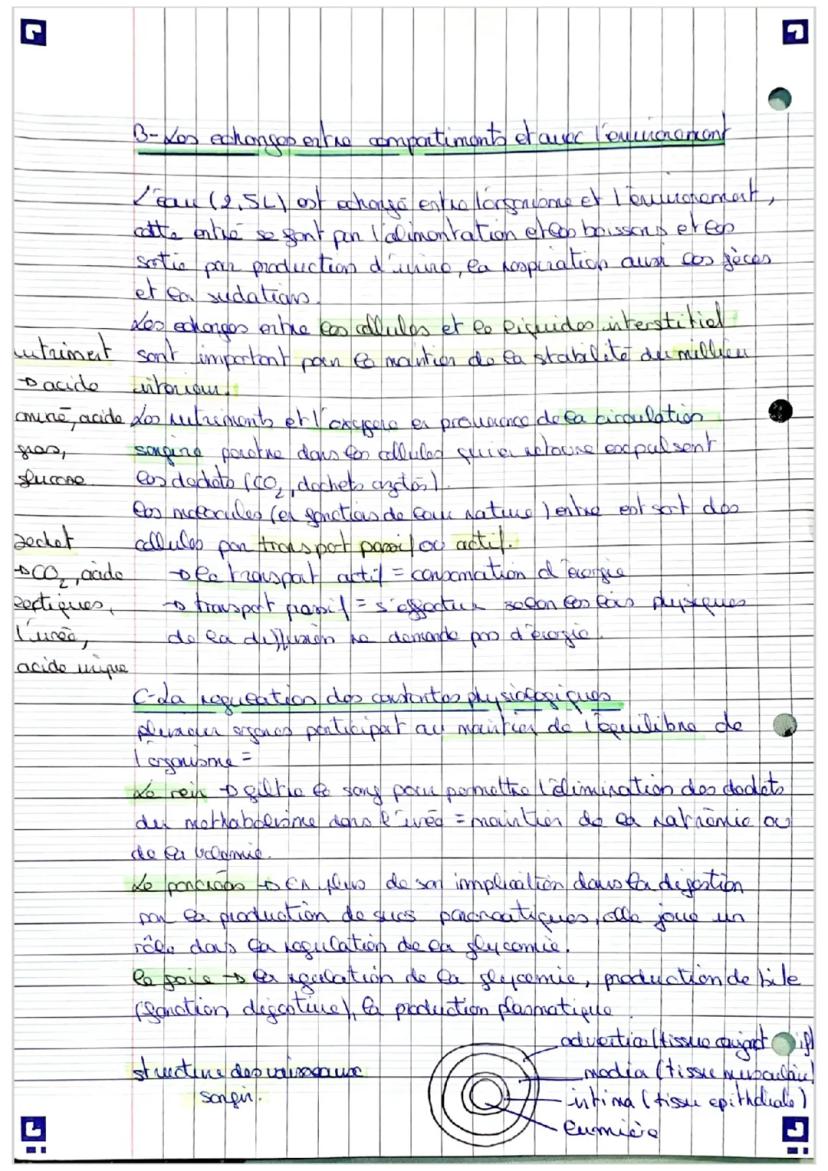 B- Les echanges entre compartiments et avec l'environement
L'eau (2,5L) est echangé entre l'organisme et l'environement,
cette entré se font par l'alimentation et les boissons et les
sortie par production d'urine, la respiration aussi les fèces
et la sudation.
Les echanges entre les cellules et le liquides interstitiel
sont important pour le maintien de la stabilité du millieu
interieur.
nutriment
→ acide
aminé, acide
gras,
glucose
Les nutriments et l'oxygene en provenance de la circulation
sangine penetre dans les cellules qui en retoure expulsent
les dechets (CO₂, dechets azotés).
Les molecules (en fonction de leur nature) entre est sort des
cellules par transport passif ou actif.
→ le transport actif = consomation d'energie
→ transport passif = s'effectue selon les lois physiques
de la diffusion ne demande pas d'energie.
Dechet
→ CO₂, acide
lactiques,
l'urée,
acide urique
C- La regulation des constantes physiologiques
plusieur organes participent au maintien de l'equilibre de
l'organisme =
Le rein → filtre le sang pour permettre l'élimination des dechets
du methabolisme dans l'urée = maintien de la natrémie ou
de la volémie.
Le pancréas → en plus de son implication dans la digestion
par la production de sucs pancreatiques, elle joue un
rôle dans la regulation de la glycemie.
le foie → la regulation de la glycemie, production de bile
(fonction digestive), la production plasmatique
structure des vaisseaux
sangin.
adventice (tissue conjonctif)
media (tissue musculaire)
intima (tissue epitheliale)
lumière